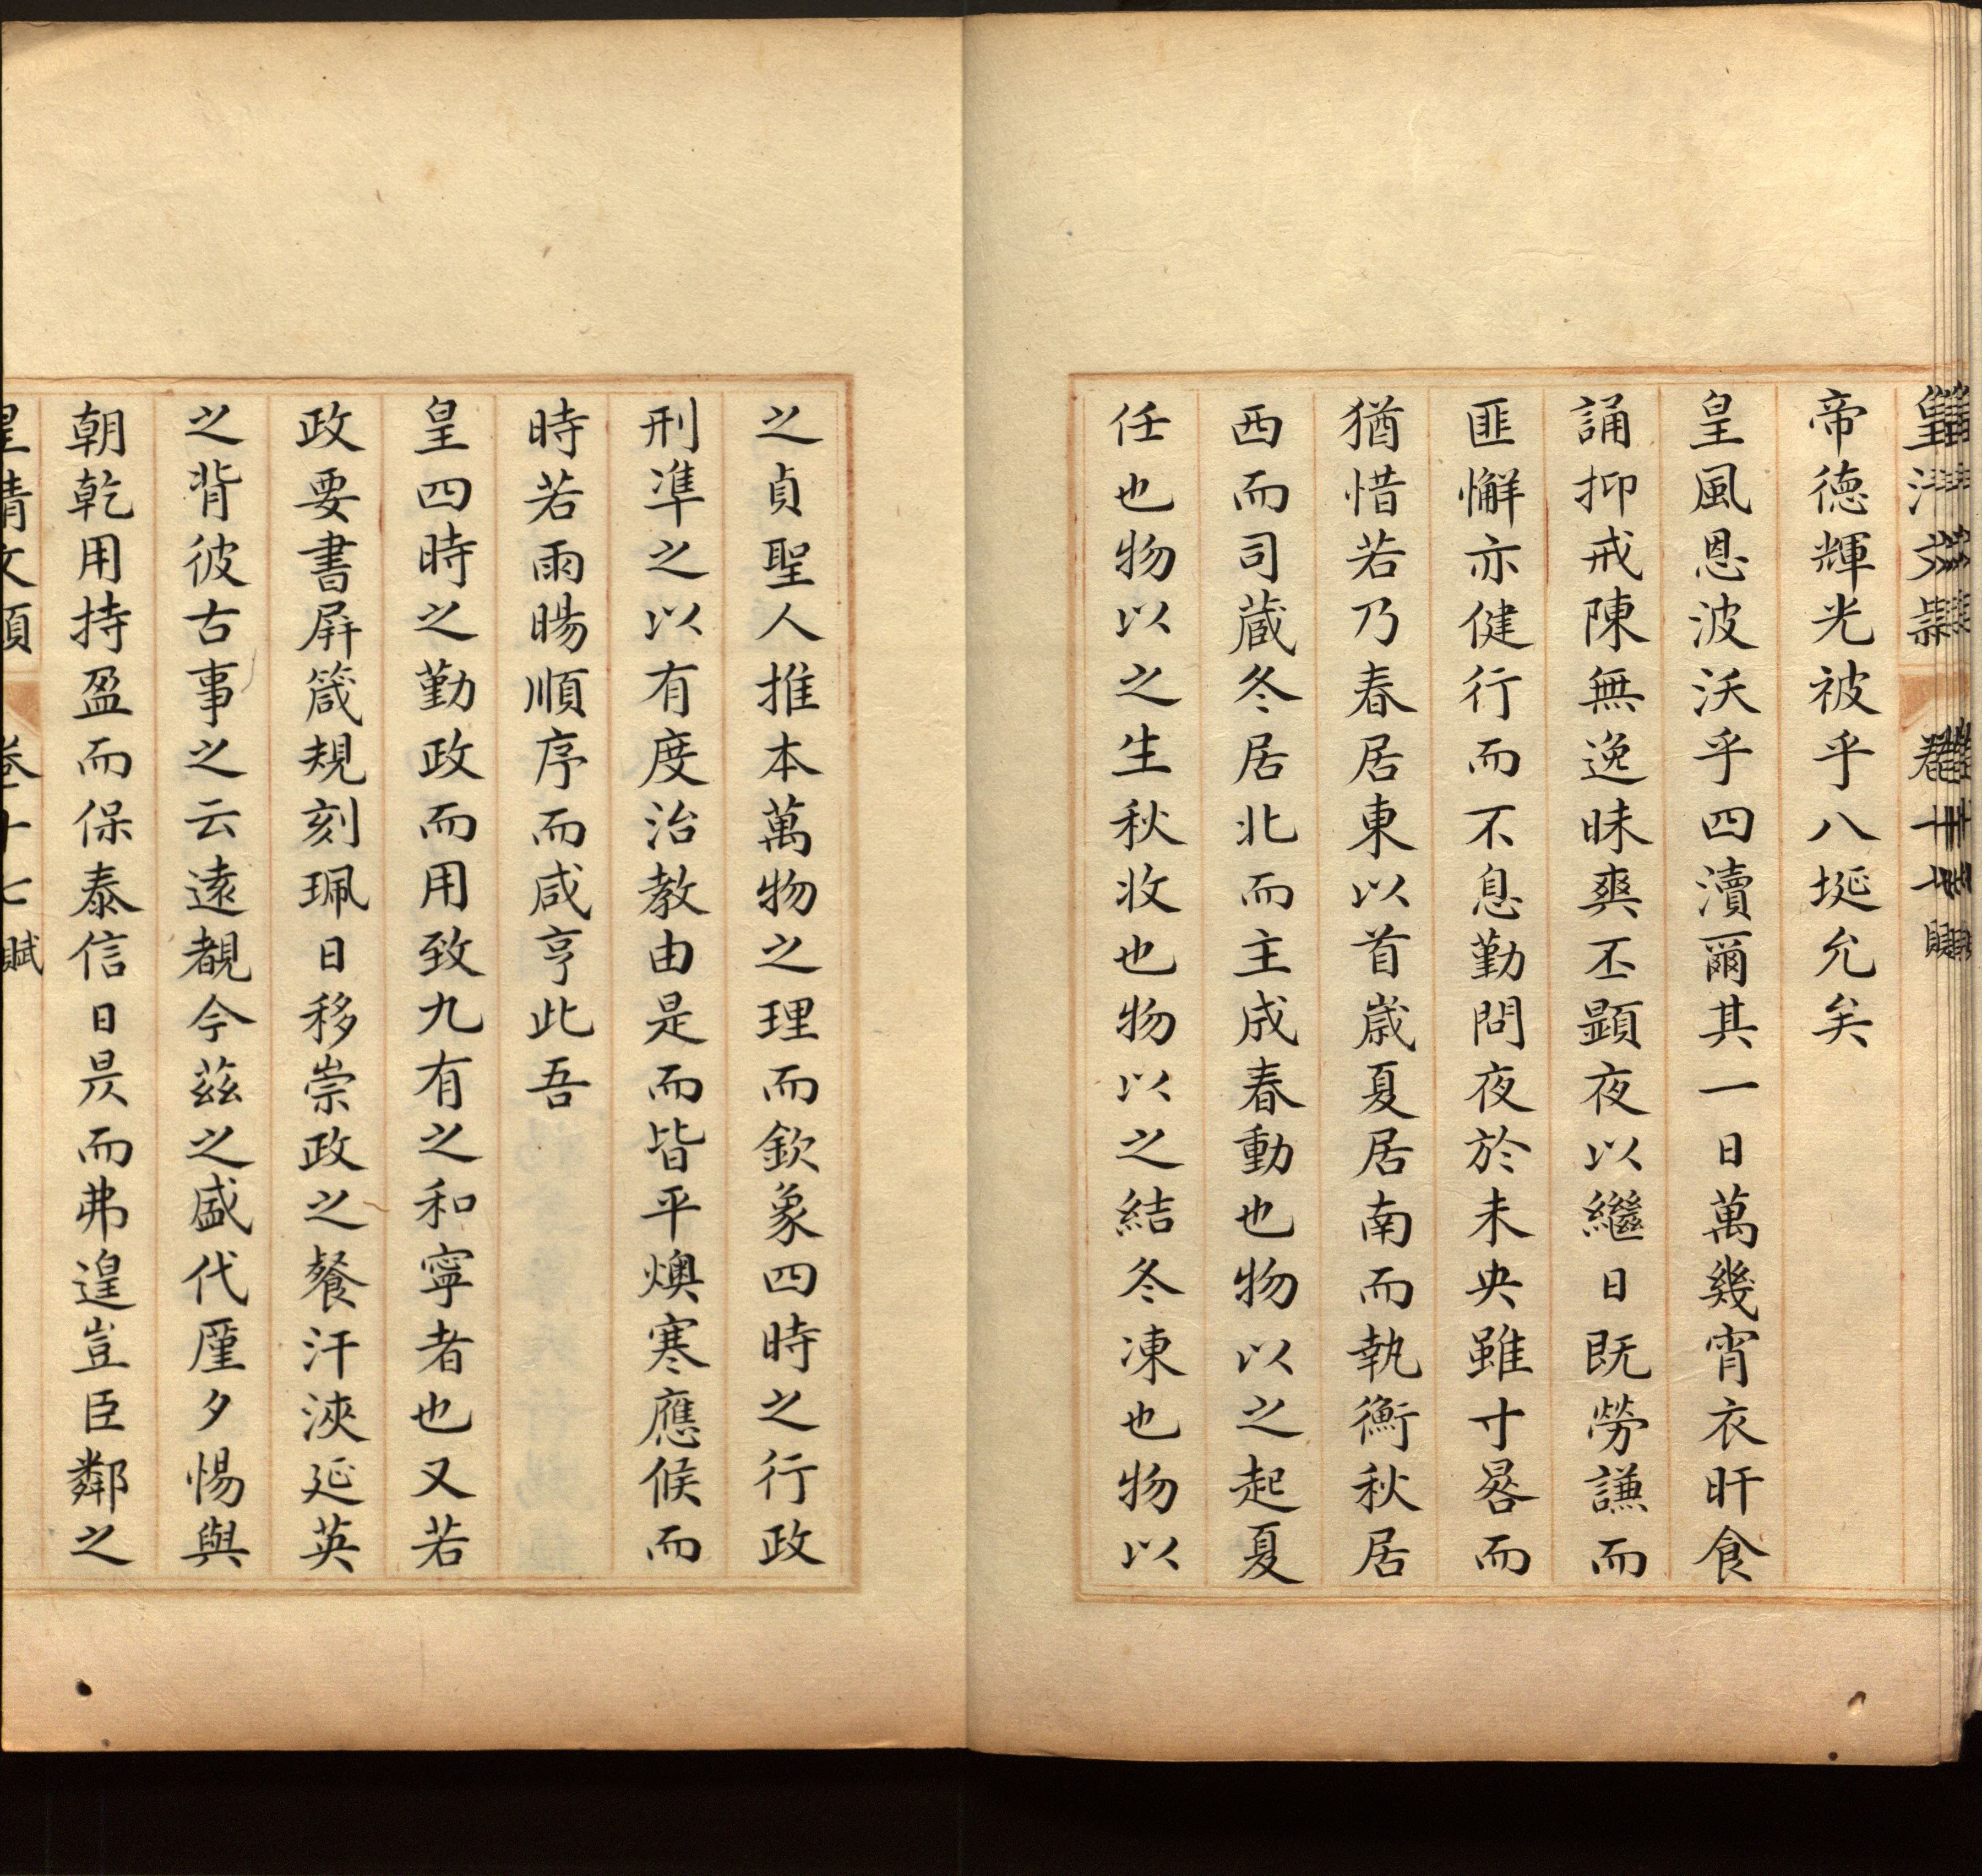 帝德輝光被乎八埏允矣
皇風恩波沃乎四瀆爾其一日萬幾宵衣旰食
誦抑戒陳無逸昧爽丕顯夜以繼日既勞謙而
匪懈亦健行而不息勤問夜於未央雖寸晷而
猶惜若乃春居東以首歲夏居南而執衡秋居
西而司藏冬居北而主成春動也物以之起夏
任也物以之生秋收也物以之結冬凍也物以
之貞聖人推本萬物之理而欽象四時之行政
刑準之以有度治教由是而皆平燠寒應候而
時若雨暘順序而咸亨此吾
皇四時之勤政而用致九有之和寧者也又若
政要書屏箴規刻珮日移崇政之餐汗浹延英
之背彼古事之云遠覩今茲之盛代廑夕惕與
朝乾用持盈而保泰信日昃而弗遑豈臣鄰之
皇清文穎 卷十七 賦